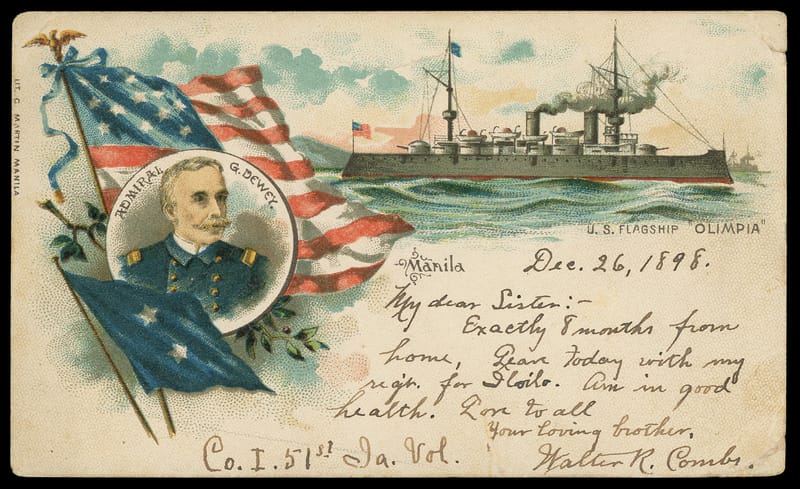 LIT. C. MARTIN MANILA
ADMIRAL G. DEWEY.
U. S. FLAGSHIP "OLIMPIA"
Manila Dec. 26, 1898.
My dear Sister:-
Exactly 8 months from
home, Leave today with my
regt. for Iloilo. Am in good
health. Love to all
Your loving brother,
Walter R. Combs.
Co. I. 51st Ia. Vol.